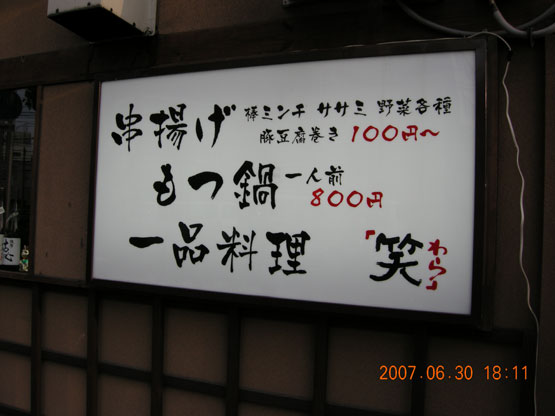 串揚げ 棒ミンチ ササミ 野菜各種
豚豆腐巻き 100円〜
もつ鍋 一人前
800円
一品料理 「笑 わらう」
2007.06.30 18:11